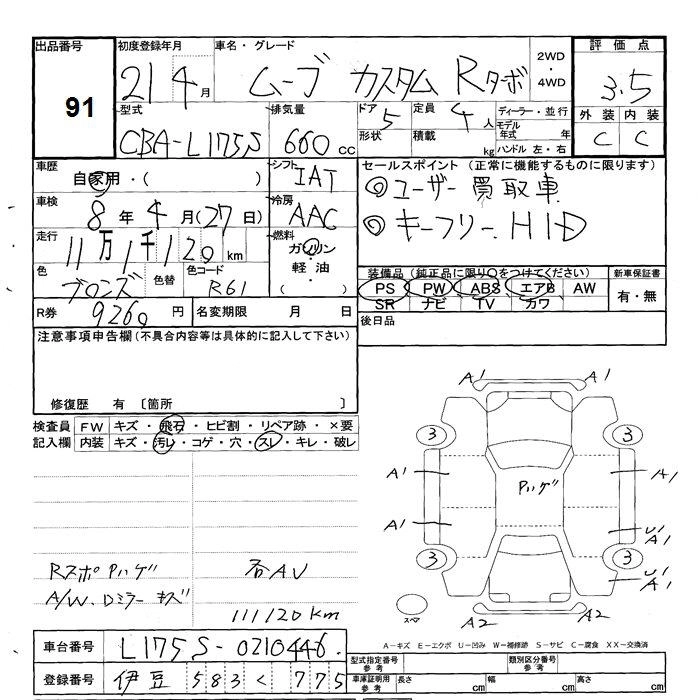 出品番号
91
初度登録年月
21 4月
車名・グレード
ムーブ カスタム Rターボ
2WD
・
4WD
評価点
3.5
外装 内装
C C
型式
CBA-L175S
排気量
660 cc
ドア 5
形状
定員 4人
積載 kg
ディーラー・並行
モデル年式 年
ハンドル 左・右
車歴
自家用・( )
シフト
IAT
車検
8年 4月(27日)
冷房
AAC
走行
11万1千120km
燃料
ガソリン
・
軽油
( )
色
ブロンズ
色替
色コード
R61
R券 9260円
名変期限 月 日
セールスポイント (正常に機能するものに限ります)
◎ユーザー買取車
◎キーフリー、HID
装備品(純正品に限り○をつけてください)
新車保証書
PS PW ABS エアB AW
SR ナビ TV カワ
有・無
後日品
注意事項申告欄(不具合内容等は具体的に記入して下さい)
修復歴 有 〔箇所 〕
検査員記入欄
FW キズ・飛石・ヒビ割・リペア跡・×要
内装 キズ・汚レ・コゲ・穴・スレ・キレ・破レ
RスポPハゲ
A/W、Dミラーキズ
社AV
111120km
A1 A1
3 3
A1 A1
Pハゲ
A1 U1
A1
3 3
U1
A1
スペア
A2 A2
A-キズ E-エクボ U-凹み W-補修跡 S-サビ C-腐食 XX-交換済
車台番号 L175S-0210446
登録番号 伊豆 583 く 775
型式指定番号
参考
類別区分番号
参考
車庫証明用
参考
長さ cm 幅 cm 高さ cm